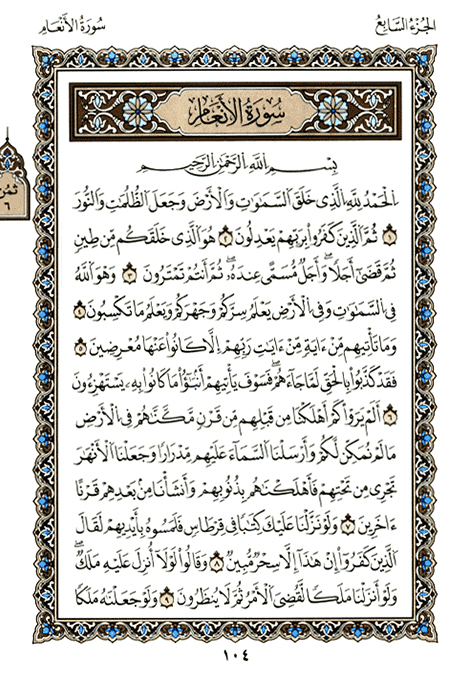 الجزء السابع
سورة الأنعام
سورة الأنعام
بسم الله الرحمن الرحيم
ثمن
٦
الحمد لله الذي خلق السموات والأرض وجعل الظلمات والنور
١ ثم الذين كفروا بربهم يعدلون ٢ هو الذي خلقكم من طين
ثم قضى أجلا وأجل مسمى عنده ثم أنتم تمترون ٣ وهو الله
في السموات وفي الأرض يعلم سركم وجهركم ويعلم ما تكسبون ٤
وما تأتيهم من ءاية من ءايت ربهم إلا كانوا عنها معرضين ٥
فقد كذبوا بالحق لما جاءهم فسوف يأتيهم أنبؤا ما كانوا به يستهزءون
٦ ألم يروا كم أهلكنا من قبلهم من قرن مكنهم في الأرض
ما لم نمكن لكم وأرسلنا السماء عليهم مدرارا وجعلنا الأنهر
تجري من تحتهم فأهلكنهم بذنوبهم وأنشأنا من بعدهم قرنا
ءاخرين ٧ ولو نزلنا عليك كتبا في قرطاس فلمسوه بأيديهم لقال
الذين كفروا إن هذا إلا سحر مبين ٨ وقالوا لولا أنزل عليه ملك
ولو أنزلنا ملكا لقضي الأمر ثم لا ينظرون ٩ ولو جعلنه ملكا
١٠٤